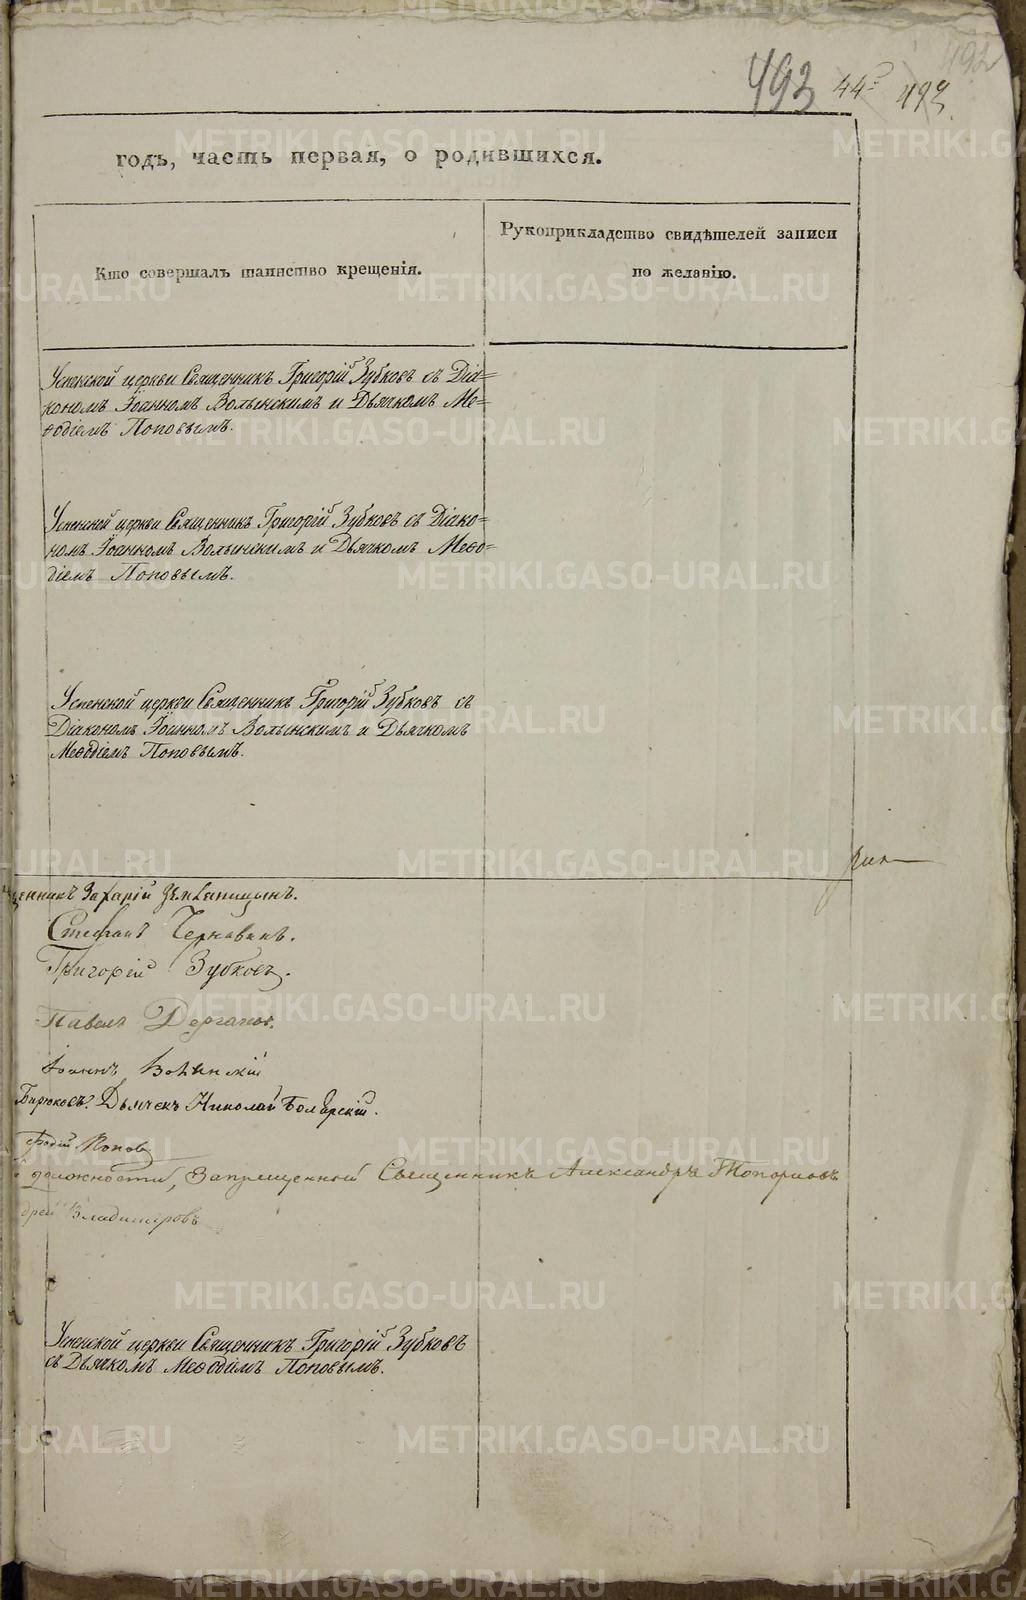 493 44 493 492
годъ, часть первая, о родившихся.
Кто совершалъ таинство крещенія.
Рукоприкладство свидѣтелей записи
по желанію.
Успенской церкви Священникъ Григорій Зубковъ съ Діа=
кономъ Іоанномъ Волынскимъ и Дьячкомъ Ме=
ѳодіемъ Поповымъ.
Успенской церкви Священникъ Григорій Зубковъ съ Діако=
номъ Іоанномъ Волынскимъ и Дьячкомъ Меѳо=
діемъ Поповымъ.
Успенской церкви Священникъ Григорій Зубковъ съ
Діакономъ Іоанномъ Волынскимъ и Дьячкомъ
Меѳодіемъ Поповымъ.
щенникъ Захарій Земляницынъ.
Стефанъ Чернавинъ.
Григорій Зубковъ.
Павелъ
Іоаннъ Волынскій
Бирюковъ. Дьячекъ Николай Боярскій.
фодій Попов
должности, Запрещенной Священникъ Александръ Топорковъ
дрей Владиміровъ
Успенской церкви Священникъ Григорій Зубковъ
съ Дьячкомъ Меѳодіемъ Поповымъ.
METRIKI.GASO-URAL.RU